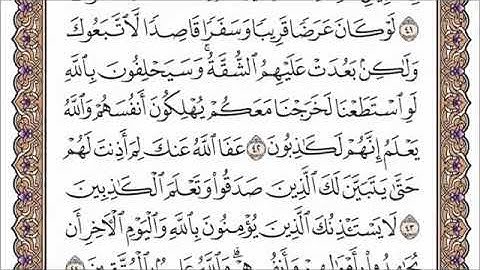 ٤١ لَوْ كَانَ عَرَضًا قَرِيبًا وَسَفَرًا قَاصِدًا لَّاتَّبَعُوكَ
وَلَٰكِنۢ بَعُدَتْ عَلَيْهِمُ ٱلشُّقَّةُ ۚ وَسَيَحْلِفُونَ بِٱللَّهِ
لَوِ ٱسْتَطَعْنَا لَخَرَجْنَا مَعَكُمْ يُهْلِكُونَ أَنفُسَهُمْ وَٱللَّهُ
يَعْلَمُ إِنَّهُمْ لَكَٰذِبُونَ ٤٢ عَفَا ٱللَّهُ عَنكَ لِمَ أَذِنتَ لَهُمْ
حَتَّىٰ يَتَبَيَّنَ لَكَ ٱلَّذِينَ صَدَقُوا۟ وَتَعْلَمَ ٱلْكَٰذِبِينَ
٤٣ لَا يَسْتَـْٔذِنُكَ ٱلَّذِينَ يُؤْمِنُونَ بِٱللَّهِ وَٱلْيَوْمِ ٱلْـَٔاخِرِ أَن
يُجَٰهِدُوا۟ بِأَمْوَٰلِهِمْ وَأَنفُسِهِمْ ۗ وَٱللَّهُ عَلِيمٌۢ بِٱلْمُتَّقِينَ ٤٤